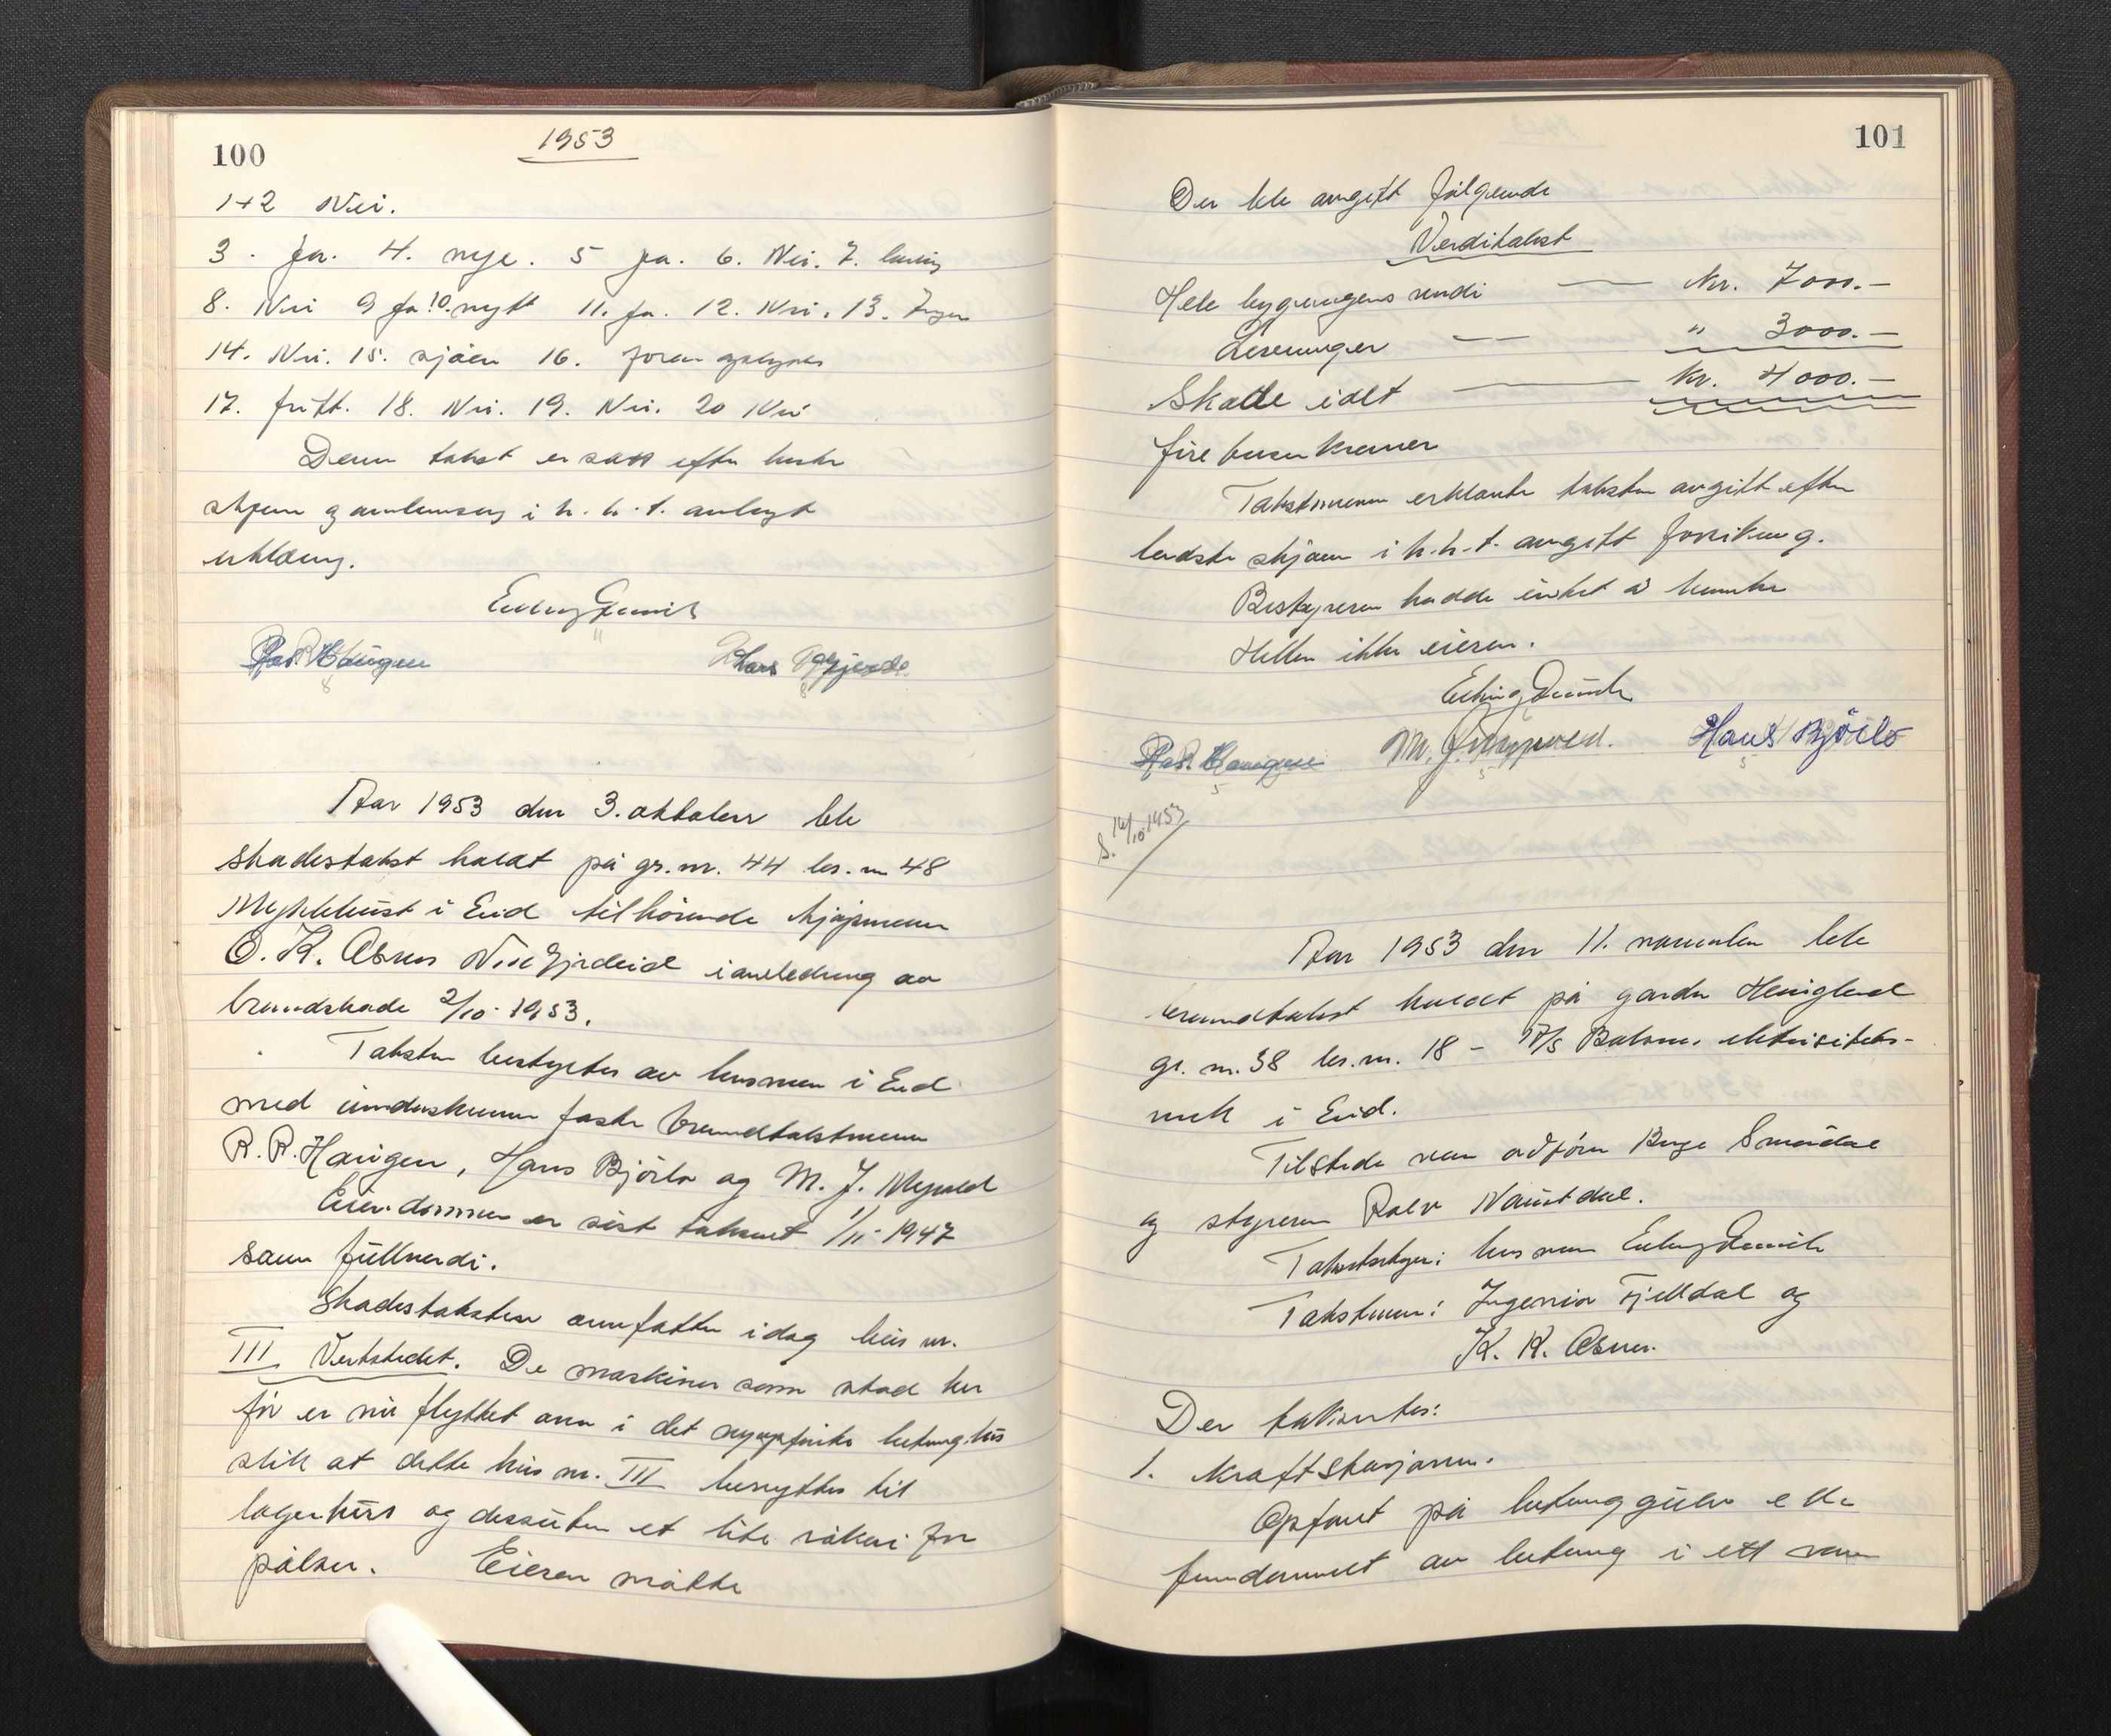 100
1953
1+2 Nei.
3. Ja. 4. nye. 5 ja. 6. Nei. 7.
8. Nei 9 Ja 10. nytt 11. Ja. 12. Nei. 13. Ingen
14. Nei. 15. sjøen 16.
17. fritt. 18. Nei. 19. Nei. 20 Nei
Denne takst er satt efter beste
skjønn i h.h.t. avlagt
erklæring.
R. R. Haugen Hans
Aar 1953 den 3. oktober ble
skadestakst holdt på gr.nr. 44 br.nr 48
Myklebust i Eid tilhørende kjøpmann
O. K. Aasnes Nordfjordeid i anledning av
brandskade 2/10-1953.
Taksten bestyrtes av lensmannen i Eid
med underskrevne faste brandtakstmenn
R. R. Haugen, Hans Bjørlo og M. J. Myrold
Eiendommen er sist taksert 1/11-1947
som fullverdi.
Skadestaksten omfatter idag hus nr.
III Verkstedet. De maskiner som stod her
før er nu flyttet over i det nyoppførte betong.hus
slik at dette hus nr. III benyttes til
lagerhus og dessuten et lite røkeri for
pølser. Eieren møtte
101
Der ble avgitt følgende
Verditakst
Hele bygningens verdi — Kr. 7000.-
Levninger — " 3000.-
Skade ialt — Kr. 4000.-
fire tusen kroner
Takstmennene erklærte taksten avgitt efter
bedste skjønn i h.h.t. avgitt forsikring.
Bestyreren hadde intet å bemerke
Heller ikke eieren.
R. R. Haugen M. J. Hans Bjørlo
S. 16/10 1953
Aar 1953 den 11. november ble
branntakst holdt på garden
gr. nr. 38 br.nr. 18 - elektrisitets-
verk i Eid.
Tilstede var Smørdal
og styreren Rolv Naustdal.
Takstbestyrer: lensmann
Takstmenn: Ingeniør Fjelldal og
K. K. Aasnes.
Der taksertes:
1. Kraftstasjonen.
Opført på betonggulv eller
fundament av betong i ett rom